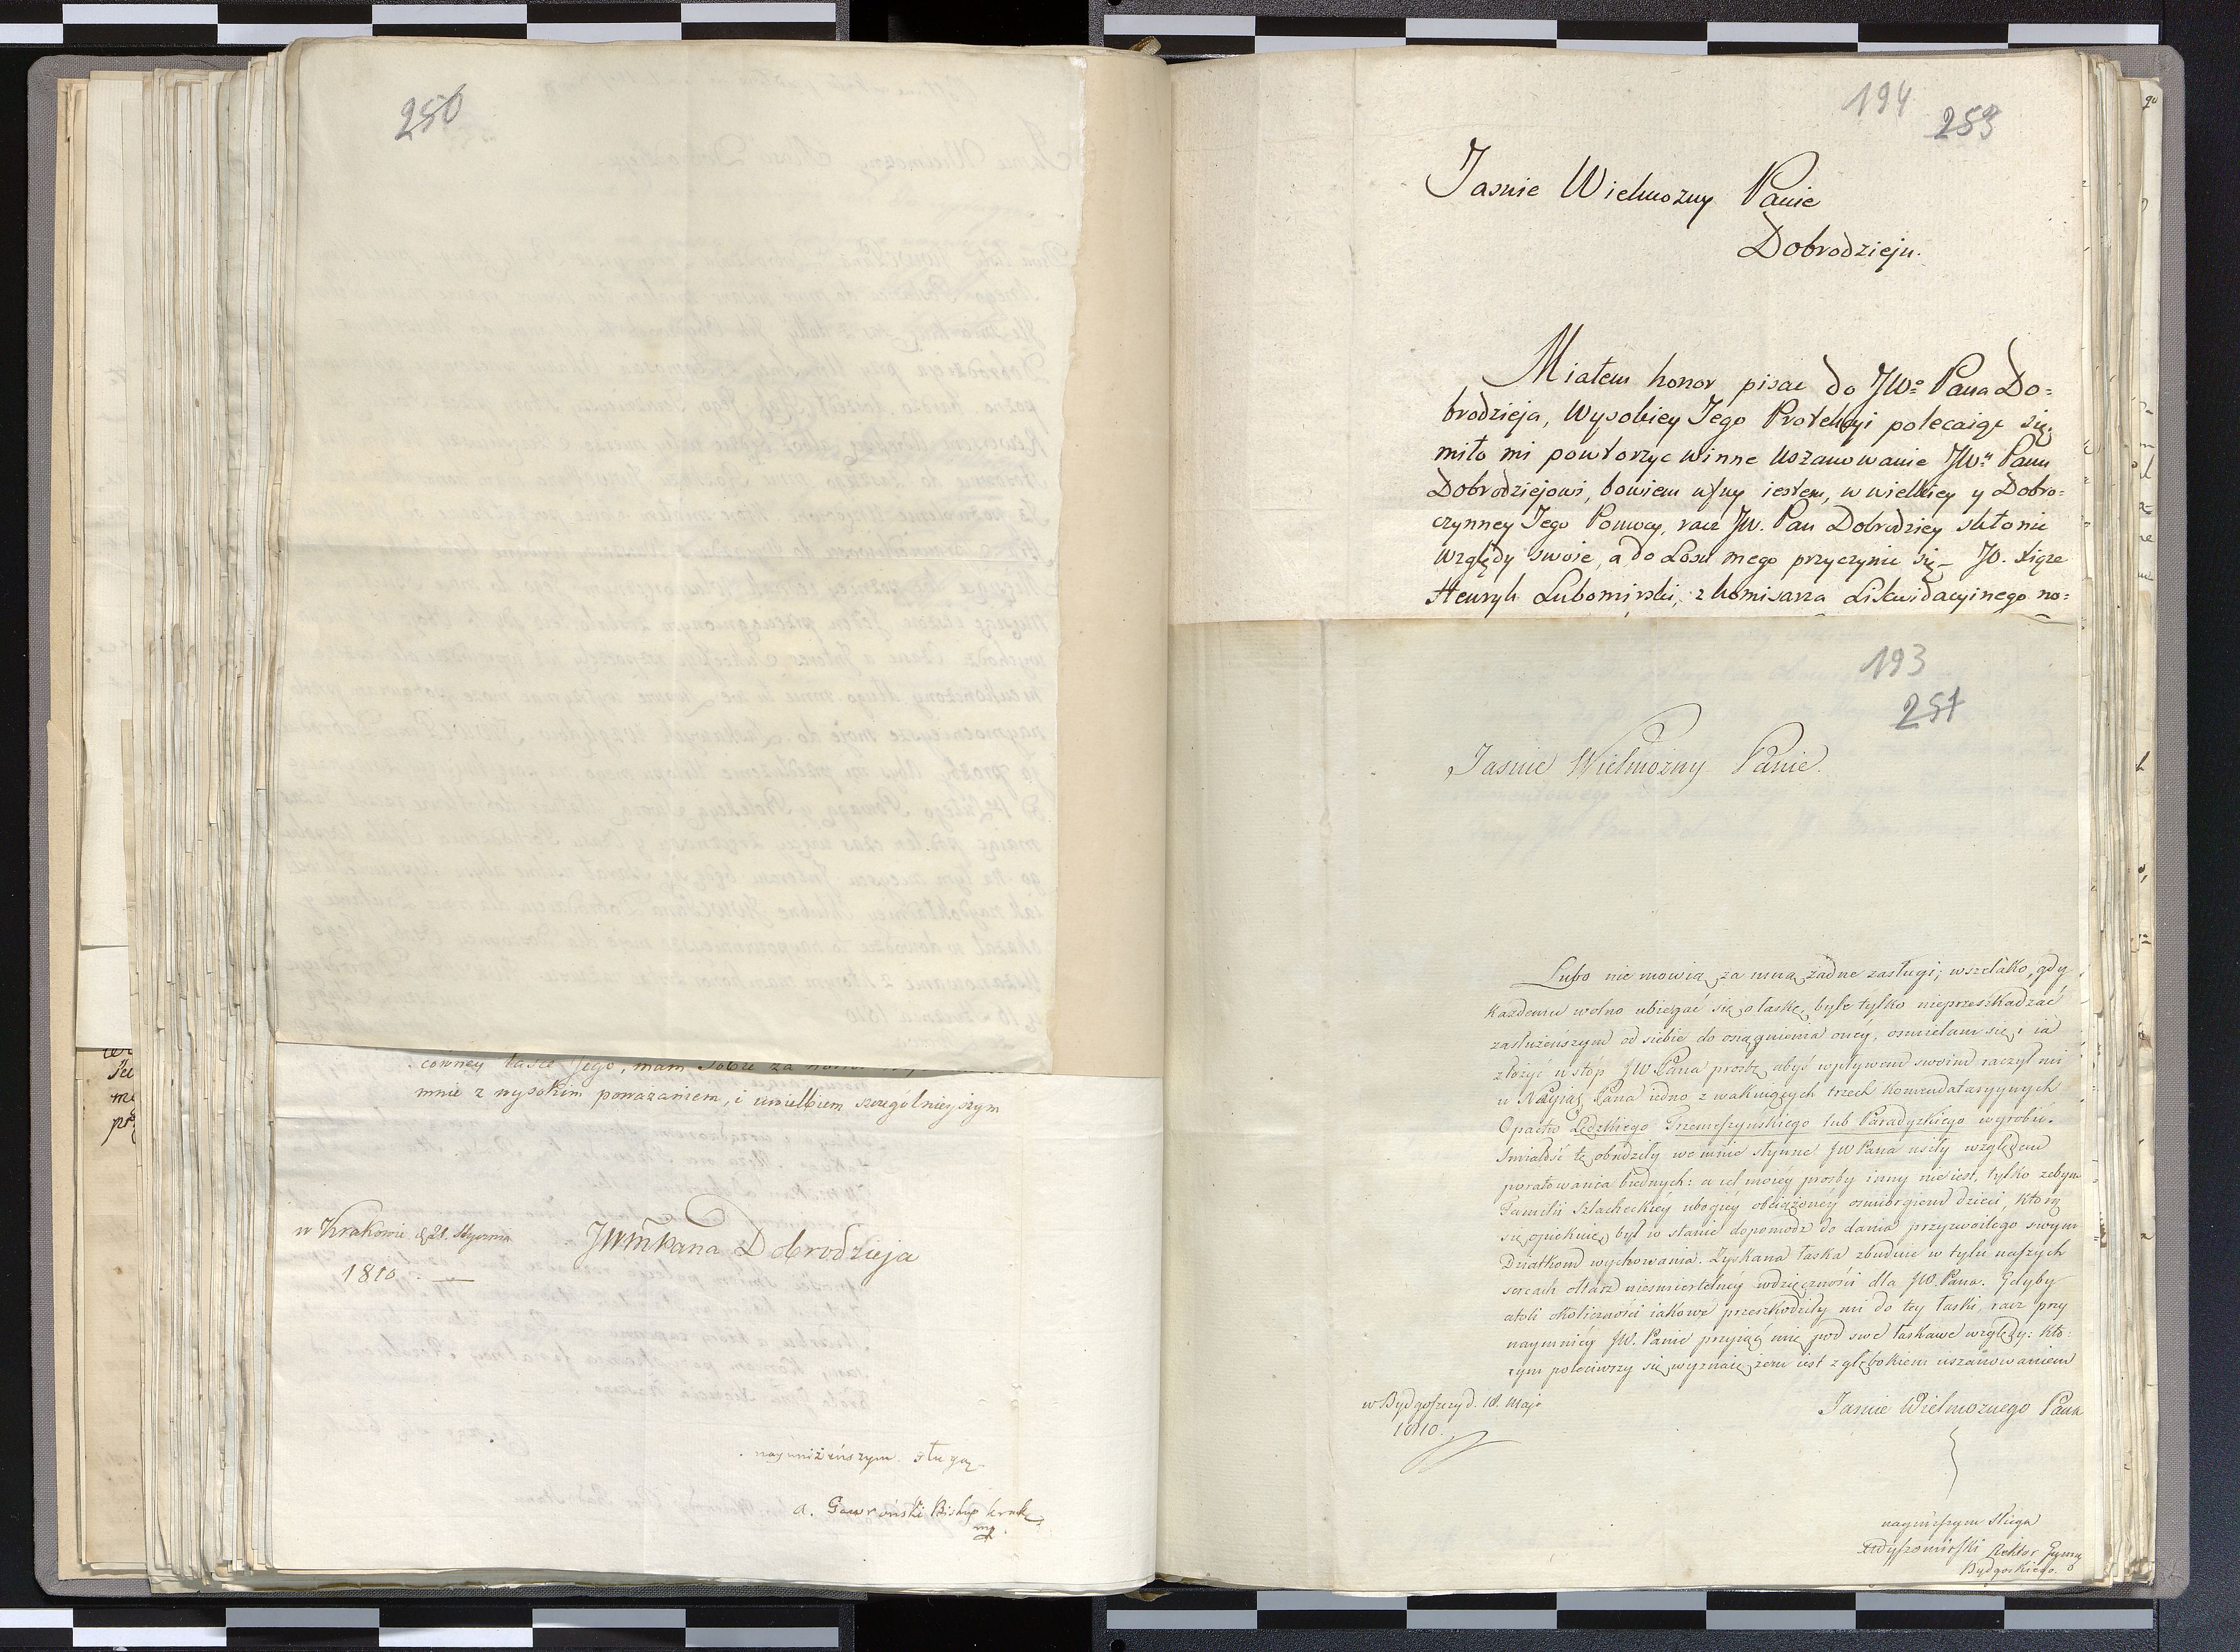 250
cowney łasce Jego, mam sobie za
mnie z wysokim poważaniem, i uwielbiem szczegolnieyszym
w Krakowie d 21. Stycznia
1810. —
JWmPana Dobrodzieja
nayuniżeńszym sługą
A. Gawroński Biskup krak
mp.
194
253
Jasnie Wielmozny Panie
Dobrodzieju.
Miałem honor pisac do JWo Pana Do=
brodzieja, Wysokiey Jego Protekcyi polecaiąc się,
miło mi powtorzyc winne Uszanowanie JWu Panu
Dobrodziejowi, bowiem ufny iestem, w wielkiey y Dobro=
czynney Jego Pomocy, racz JW. Pan Dobrodziey skłonic
względy swoie, a do Losu mego przyczynic się – JO. Xiąże
Henryk Lubomirski, z komisarza Likwidacyinego no=
193
251
Jasnie Wielmożny Panie.
Lubo nie mowią za mną żadne zasługi; wszelako, gdy
każdemu wolno ubiegać się o łaskę, byle tylko nieprzeszkadzać
zasłużeńszym od siebie do osiągnienia oney, osmielam się i ia
złożyć u stóp JW Pana prosbę abyś wpływem swoim raczył mi
u Nayias Pana iedno z wakuiących trzech Komendataryynych
Opactw Lędzkiego Trzemeszyńskiego lub Paradyzkiego wyrobić.
Smiałość tę obudziły we mnie słynne JW Pana usiły względem
poratowania biednych: a cel moiey prosby inny nie iest, tylko żebym
Familii Szlacheckiey ubogiey obciążoney osmiorgiem dzieci, którą
się opiekuię, był w stanie dopomodz do dania przyzwoitego swym
Dziatkom wychowania. Zyskana łaska zbuduie w tylu naszych
sercach ołtarz niesmiertelney wdzięczności dla JW. Pana. Gdyby
atoli okoliczności iakowe przeszkodziły mi do tey łaski, racz przy
naymniey JW. Panie przyiąć mię pod swe łaskawe względy: któ=
rym poleciwszy się, wyznaię, żem iest z głębokiem uszanowaniem
w Bydgoszczy d. 18. Maja
1810.
Jasnie Wielmożnego Pana
nayniższym Sługą
Rektor Gymn
Bydgoskiego.